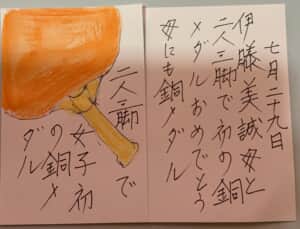 七月二十九日
伊藤美誠女と
二人三脚で初の銅
メダルおめでとう
女にも銅メダル
二人三脚で
女子初
の銅メ
ダル